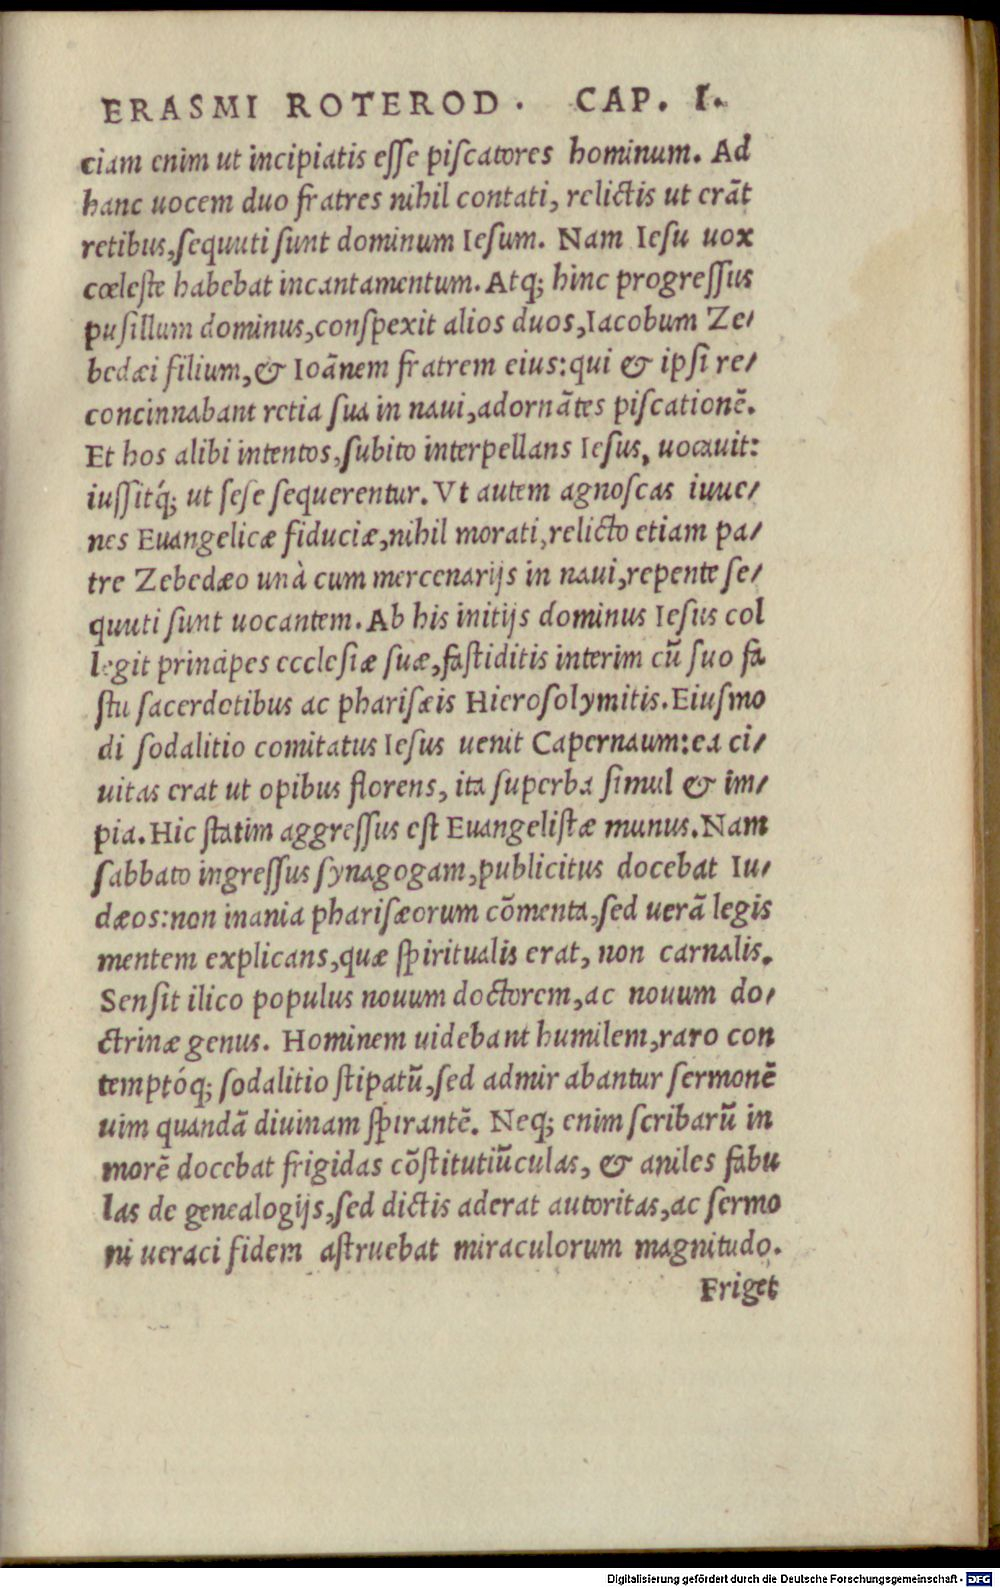 ERASMI ROTEROD. CAP. I.
ciam enim ut incipiatis eſſe piſcatores hominum. Ad
hanc uocem duo fratres nihil contati, relictis ut erãt
retibus, ſequuti ſunt dominum Ieſum. Nam Ieſu uox
cœleſte habebat incantamentum. Atq; hinc progreſſus
puſillum dominus, conſpexit alios duos, Iacobum Ze/
bedæi filium, & Ioãnem fratrem eius: qui & ipſi re/
concinnabant retia ſua in naui, adornãtes piſcationẽ.
Et hos alibi intentos, ſubito interpellans Ieſus, uocauit:
iuſſitq́; ut ſeſe ſequerentur. Vt autem agnoſcas iuue/
nes Euangelicæ fiduciæ, nihil morati, relicto etiam pa/
tre Zebedæo unà cum mercenarijs in naui, repente ſe/
quuti ſunt uocantem. Ab his initijs dominus Ieſus col
legit principes eccleſiæ ſuæ, faſtiditis interim cũ ſuo fa
ſtu ſacerdotibus ac phariſæis Hieroſolymitis. Eiuſmo
di ſodalitio comitatus Ieſus uenit Capernaum: ea ci/
uitas erat ut opibus florens, ita ſuperba ſimul & im/
pia. Hic ſtatim aggreſſus eſt Euangeliſtæ munus. Nam
ſabbato ingreſſus ſynagogam, publicitus docebat Iu/
dæos: non inania phariſæorum cõmenta, ſed uerã legis
mentem explicans, quæ ſpiritualis erat, non carnalis.
Senſit ilico populus nouum doctorem, ac nouum do/
ctrinæ genus. Hominem uidebant humilem, raro con
temptóq; ſodalitio ſtipatũ, ſed admirabantur ſermonẽ
uim quandã diuinam ſpirantẽ. Neq; enim ſcribarũ in
morẽ docebat frigidas cõſtitutiũculas, & aniles fabu
las de genealogijs, ſed dictis aderat autoritas, ac ſermo
ni ueraci fidem aſtruebat miraculorum magnitudo.
Friget
Digitalisierung gefördert durch die Deutsche Forschungsgemeinschaft - DFG